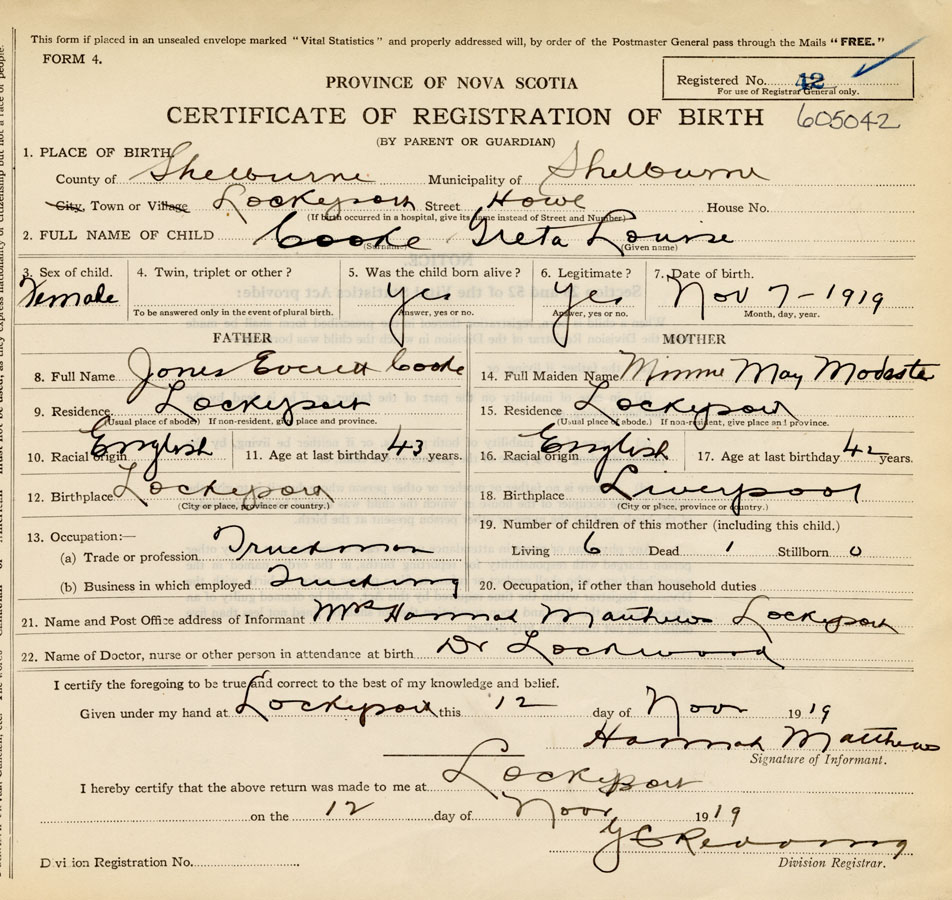 This form if placed in an unsealed envelope marked "Vital Statistics" and properly addressed will, by order of the Postmaster General pass through the Mails "FREE."
FORM 4.
Registered No. 42
For use of Registrar General only.
PROVINCE OF NOVA SCOTIA
CERTIFICATE OF REGISTRATION OF BIRTH 605042
(BY PARENT OR GUARDIAN)
1. PLACE OF BIRTH
County of Shelburne Municipality of Shelburne
City, Town or Village Lockeport Street Howe House No.
(If birth occurred in a hospital, give its name instead of Street and Number)
2. FULL NAME OF CHILD Cooke Greta Louise
(Surname) (Given name)
3. Sex of child. 4. Twin, triplet or other? 5. Was the child born alive? 6. Legitimate? 7. Date of birth.
Female Yes Yes Nov 7-1919
To be answered only in the event of plural birth. Answer, yes or no. Answer, yes or no. Month, day, year.
FATHER MOTHER
8. Full Name Jones Everett Cooke 14. Full Maiden Name Minnie May
9. Residence Lockeport 15. Residence Lockeport
(Usual place of abode) If non-resident, give place and province. (Usual place of abode.) If non-resident, give place and province.
10. Racial origin English 11. Age at last birthday 43 years. 16. Racial origin English 17. Age at last birthday 42 years.
12. Birthplace Lockeport 18. Birthplace Liverpool
(City or place, province or country.) (City or place, province or country.)
13. Occupation:— 19. Number of children of this mother (including this child.)
(a) Trade or profession Truckman Living 6 Dead 1 Stillborn 0
(b) Business in which employed Trucking 20. Occupation, if other than household duties
21. Name and Post Office address of Informant Mrs Hannah Matthews Lockeport
22. Name of Doctor, nurse or other person in attendance at birth. Dr Lockwood
I certify the foregoing to be true and correct to the best of my knowledge and belief.
Given under my hand at Lockeport this 12 day of Nov 1919
Hannah Matthews
Signature of Informant.
I hereby certify that the above return was made to me at Lockeport
on the 12 day of Nov 1919
Division Registrar.
Division Registration No.